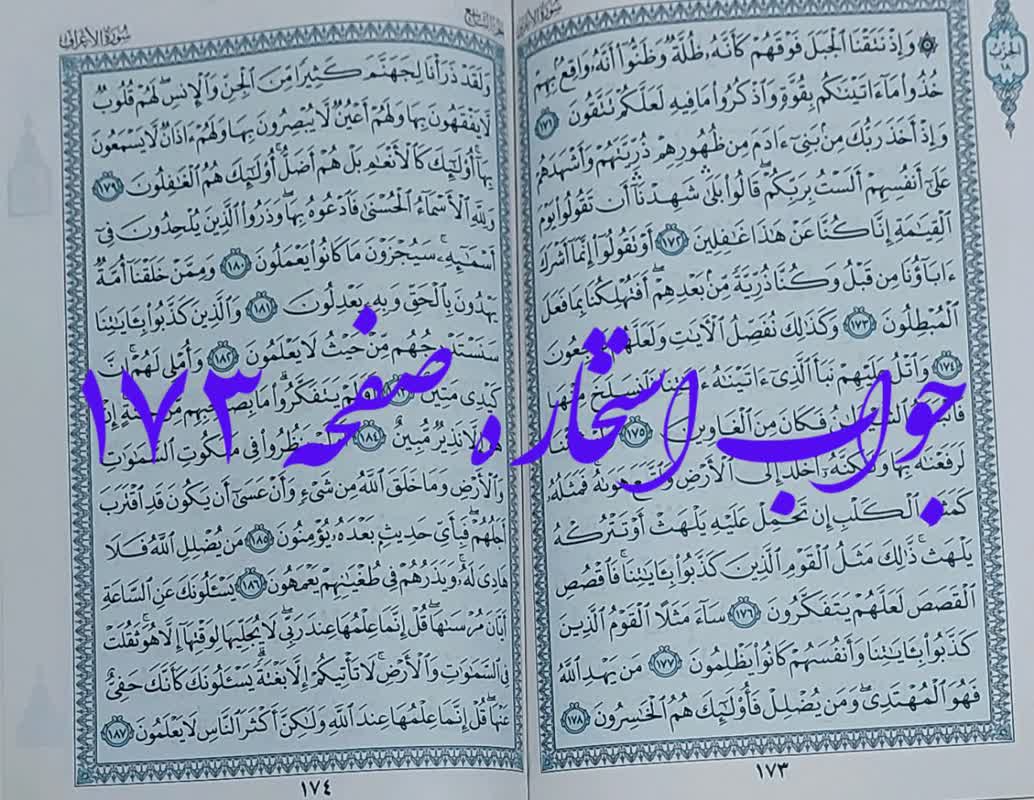 سُورَةُ الأَعْرَافِ
الحِزْبُ ١٨
۞ وَإِذْ نَتَقْنَا ٱلْجَبَلَ فَوْقَهُمْ كَأَنَّهُۥ ظُلَّةٌ وَظَنُّوٓا۟ أَنَّهُۥ وَاقِعٌۢ بِهِمْ
خُذُوا۟ مَآ ءَاتَيْنَـٰكُم بِقُوَّةٍ وَٱذْكُرُوا۟ مَا فِيهِ لَعَلَّكُمْ تَتَّقُونَ ١٧١
وَإِذْ أَخَذَ رَبُّكَ مِنۢ بَنِىٓ ءَادَمَ مِن ظُهُورِهِمْ ذُرِّيَّتَهُمْ وَأَشْهَدَهُمْ
عَلَىٰٓ أَنفُسِهِمْ أَلَسْتُ بِرَبِّكُمْ ۖ قَالُوا۟ بَلَىٰ ۛ شَهِدْنَآ ۛ أَن تَقُولُوا۟ يَوْمَ
ٱلْقِيَـٰمَةِ إِنَّا كُنَّا عَنْ هَـٰذَا غَـٰفِلِينَ ١٧٢ أَوْ تَقُولُوٓا۟ إِنَّمَآ أَشْرَكَ
ءَابَآؤُنَا مِن قَبْلُ وَكُنَّا ذُرِّيَّةً مِّنۢ بَعْدِهِمْ ۖ أَفَتُهْلِكُنَا بِمَا فَعَلَ
ٱلْمُبْطِلُونَ ١٧٣ وَكَذَٰلِكَ نُفَصِّلُ ٱلْـَٔايَـٰتِ وَلَعَلَّهُمْ يَرْجِعُونَ
١٧٤ وَٱتْلُ عَلَيْهِمْ نَبَأَ ٱلَّذِىٓ ءَاتَيْنَـٰهُ ءَايَـٰتِنَا فَٱنسَلَخَ مِنْهَا
فَأَتْبَعَهُ ٱلشَّيْطَـٰنُ فَكَانَ مِنَ ٱلْغَاوِينَ ١٧٥ وَلَوْ شِئْنَا
لَرَفَعْنَـٰهُ بِهَا وَلَـٰكِنَّهُۥٓ أَخْلَدَ إِلَى ٱلْأَرْضِ وَٱتَّبَعَ هَوَىٰهُ ۚ فَمَثَلُهُۥ
كَمَثَلِ ٱلْكَلْبِ إِن تَحْمِلْ عَلَيْهِ يَلْهَثْ أَوْ تَتْرُكْهُ
يَلْهَث ۚ ذَّٰلِكَ مَثَلُ ٱلْقَوْمِ ٱلَّذِينَ كَذَّبُوا۟ بِـَٔايَـٰتِنَا ۚ فَٱقْصُصِ
ٱلْقَصَصَ لَعَلَّهُمْ يَتَفَكَّرُونَ ١٧٦ سَآءَ مَثَلًا ٱلْقَوْمُ ٱلَّذِينَ
كَذَّبُوا۟ بِـَٔايَـٰتِنَا وَأَنفُسَهُمْ كَانُوا۟ يَظْلِمُونَ ١٧٧ مَن يَهْدِ ٱللَّهُ
فَهُوَ ٱلْمُهْتَدِى ۖ وَمَن يُضْلِلْ فَأُو۟لَـٰٓئِكَ هُمُ ٱلْخَـٰسِرُونَ ١٧٨
١٧٣
سُورَةُ الأَعْرَافِ
وَلَقَدْ ذَرَأْنَا لِجَهَنَّمَ كَثِيرًا مِّنَ ٱلْجِنِّ وَٱلْإِنسِ ۖ لَهُمْ قُلُوبٌ
لَّا يَفْقَهُونَ بِهَا وَلَهُمْ أَعْيُنٌ لَّا يُبْصِرُونَ بِهَا وَلَهُمْ ءَاذَانٌ لَّا يَسْمَعُونَ
بِهَآ ۚ أُو۟لَـٰٓئِكَ كَٱلْأَنْعَـٰمِ بَلْ هُمْ أَضَلُّ ۚ أُو۟لَـٰٓئِكَ هُمُ ٱلْغَـٰفِلُونَ ١٧٩
وَلِلَّهِ ٱلْأَسْمَآءُ ٱلْحُسْنَىٰ فَٱدْعُوهُ بِهَا ۖ وَذَرُوا۟ ٱلَّذِينَ يُلْحِدُونَ فِىٓ
أَسْمَـٰٓئِهِۦ ۚ سَيُجْزَوْنَ مَا كَانُوا۟ يَعْمَلُونَ ١٨٠ وَمِمَّنْ خَلَقْنَآ أُمَّةٌ
يَهْدُونَ بِٱلْحَقِّ وَبِهِۦ يَعْدِلُونَ ١٨١ وَٱلَّذِينَ كَذَّبُوا۟ بِـَٔايَـٰتِنَا
سَنَسْتَدْرِجُهُم مِّنْ حَيْثُ لَا يَعْلَمُونَ ١٨٢ وَأُمْلِى لَهُمْ ۚ إِنَّ
كَيْدِى مَتِينٌ ١٨٣ أَوَلَمْ يَتَفَكَّرُوا۟ ۗ مَا بِصَاحِبِهِم مِّن جِنَّةٍ ۚ إِنْ
هُوَ إِلَّا نَذِيرٌ مُّبِينٌ ١٨٤ أَوَلَمْ يَنظُرُوا۟ فِى مَلَكُوتِ ٱلسَّمَـٰوَٰتِ
وَٱلْأَرْضِ وَمَا خَلَقَ ٱللَّهُ مِن شَىْءٍ وَأَنْ عَسَىٰٓ أَن يَكُونَ قَدِ ٱقْتَرَبَ
أَجَلُهُمْ ۖ فَبِأَىِّ حَدِيثٍۭ بَعْدَهُۥ يُؤْمِنُونَ ١٨٥ مَن يُضْلِلِ ٱللَّهُ فَلَا
هَادِىَ لَهُۥ ۚ وَيَذَرُهُمْ فِى طُغْيَـٰنِهِمْ يَعْمَهُونَ ١٨٦ يَسْـَٔلُونَكَ عَنِ ٱلسَّاعَةِ
أَيَّانَ مُرْسَىٰهَا ۖ قُلْ إِنَّمَا عِلْمُهَا عِندَ رَبِّى ۖ لَا يُجَلِّيهَا لِوَقْتِهَآ إِلَّا هُوَ ۚ ثَقُلَتْ
فِى ٱلسَّمَـٰوَٰتِ وَٱلْأَرْضِ ۚ لَا تَأْتِيكُمْ إِلَّا بَغْتَةً ۗ يَسْـَٔلُونَكَ كَأَنَّكَ حَفِىٌّ
عَنْهَا ۖ قُلْ إِنَّمَا عِلْمُهَا عِندَ ٱللَّهِ وَلَـٰكِنَّ أَكْثَرَ ٱلنَّاسِ لَا يَعْلَمُونَ ١٨٧
١٧٤
جواب استخاره صفحه ۱۷۳